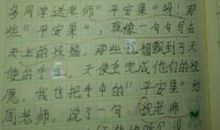 多同学送老师"平安果"呀,那
些"平安果",就像一句句写在
天上的祝福,那些祝福飘到了天
使的手里,天使去完成他们的
愿,我也把手中的"平安果"给
周老师,说了一句:祝老师